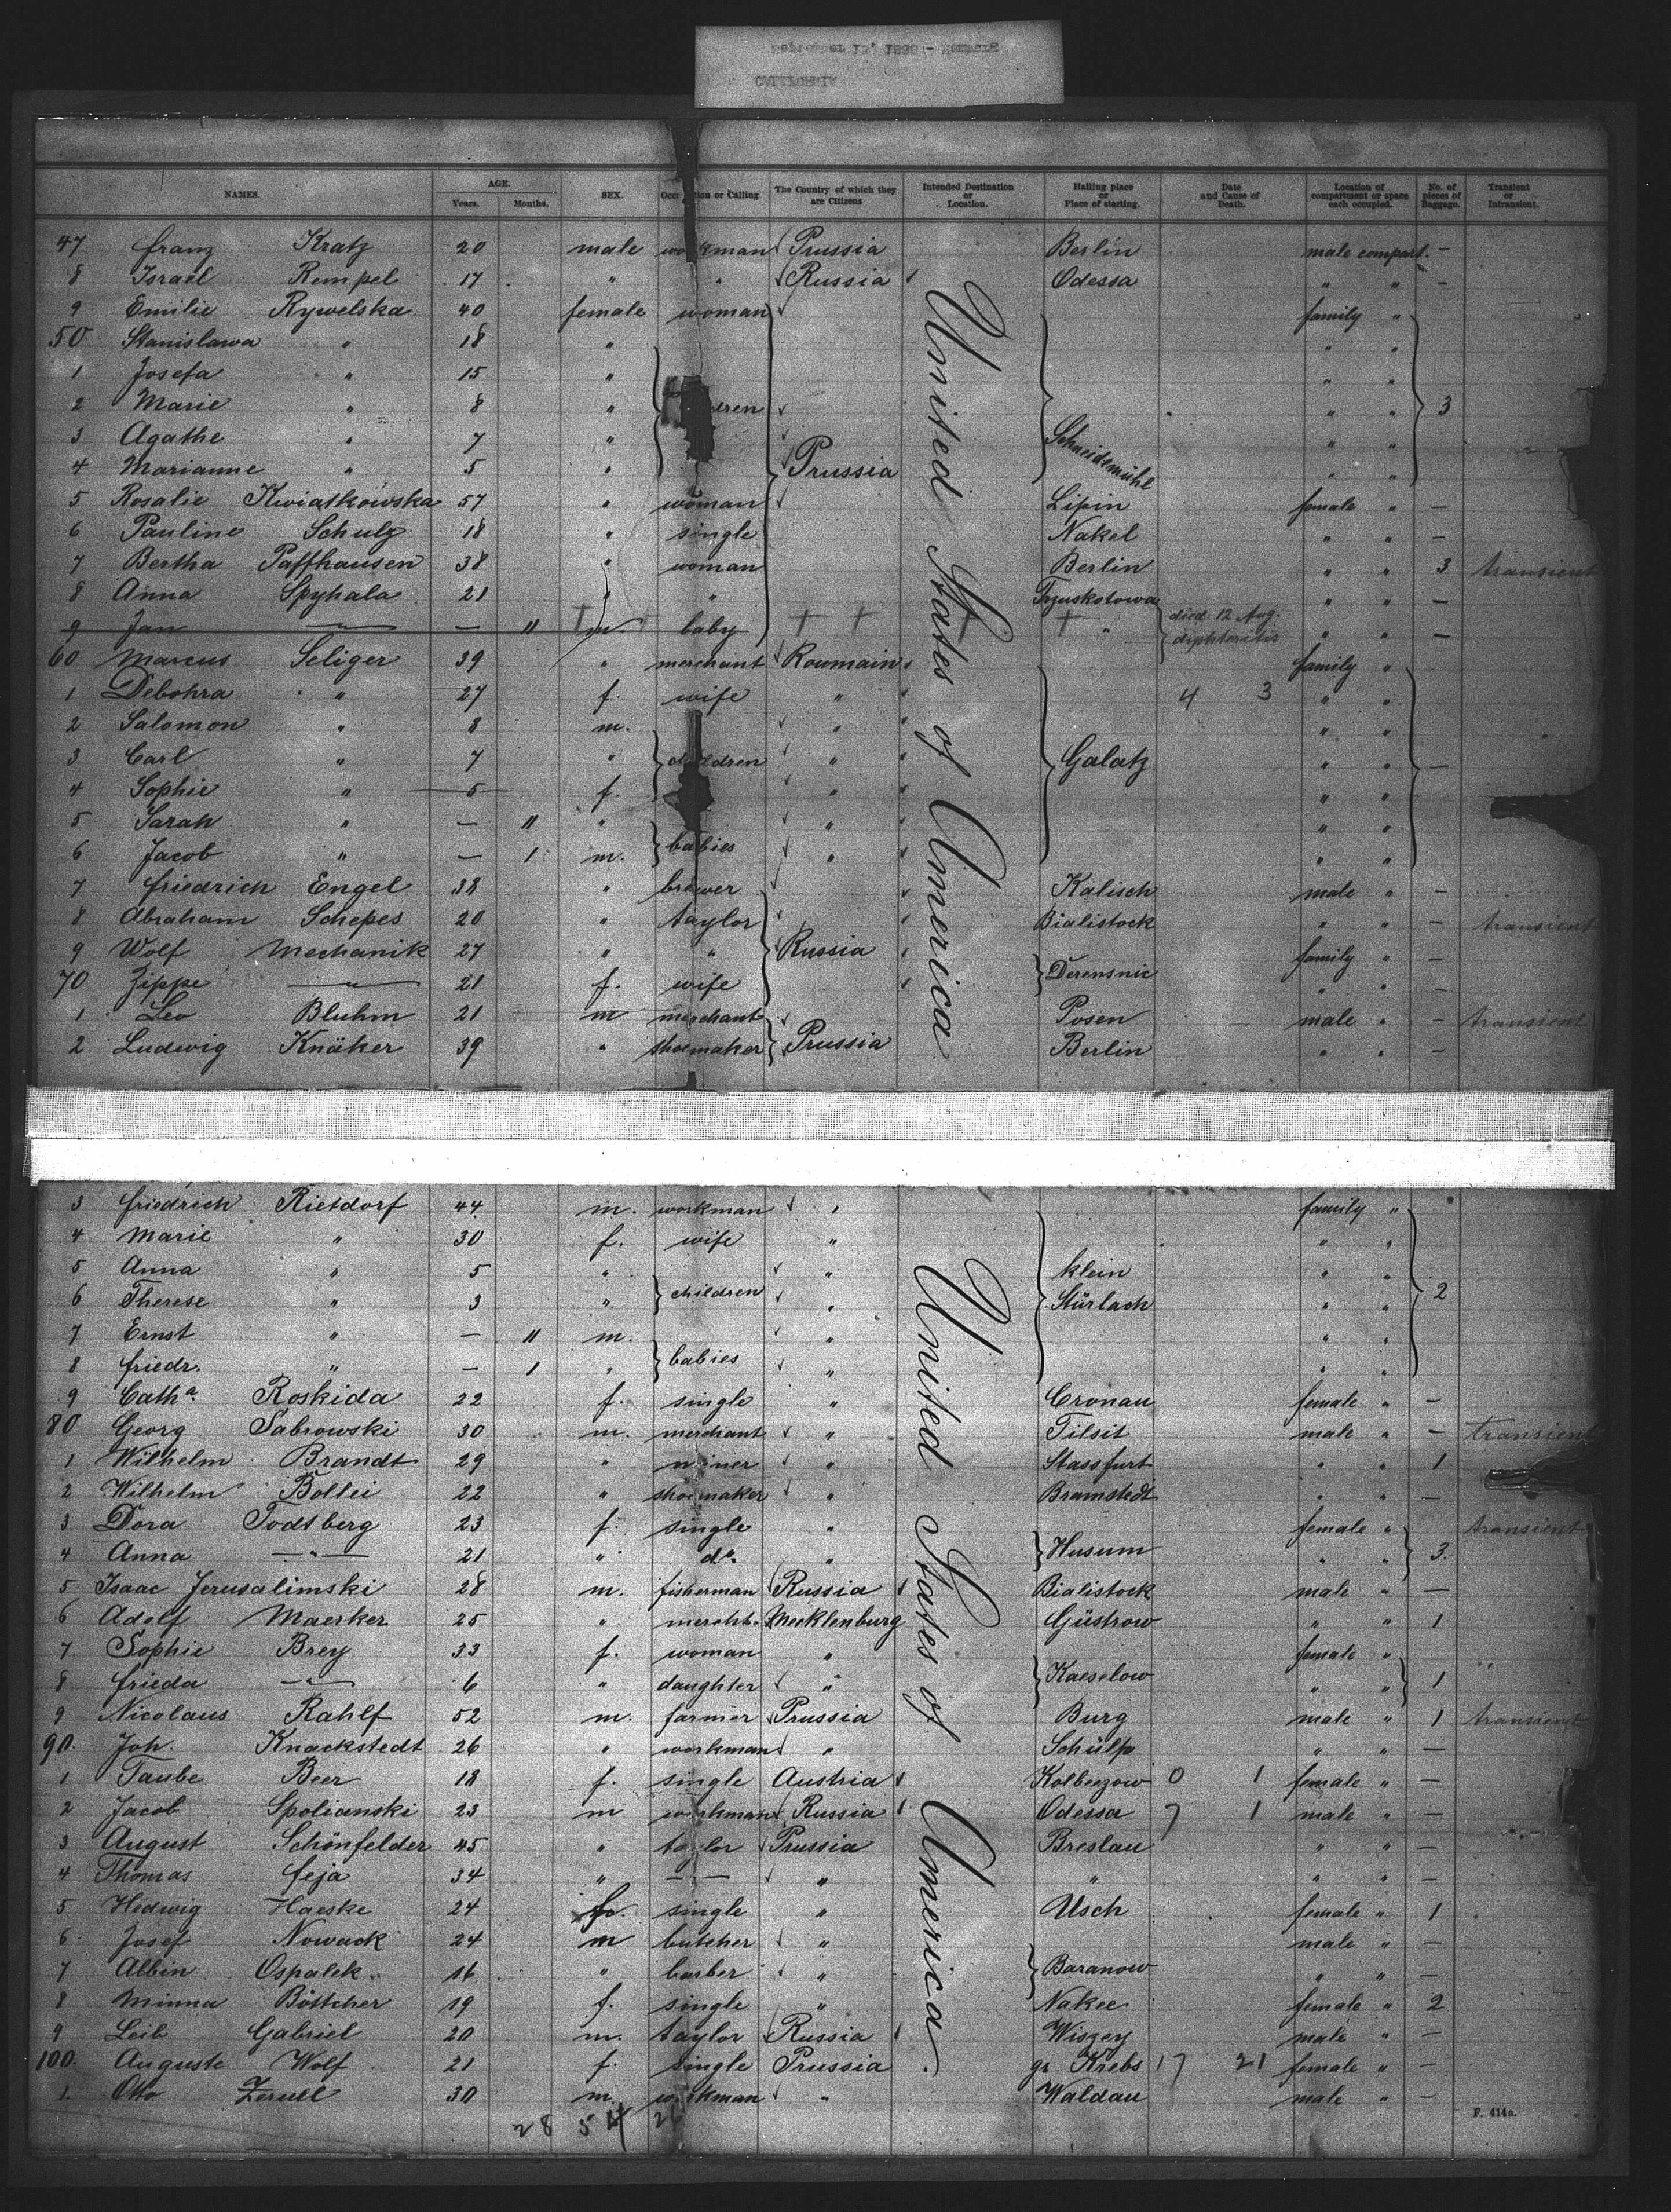 NAMES. AGE. Years. Months. SEX. Occupation or Calling. The Country of which they are Citizens Intended Destination or Location. Hailing place or Place of starting. Date and Cause of Death. Location of compartment or space each occupied. No. of pieces of Baggage. Transient or Intransient.
47 Franz Kratz 20 male workman Prussia Berlin male compart. —
8 Israel Rempel 17 " " Russia Odessa " " —
9 Emilie Rywelska 40 female woman family "
50 Stanislawa " 18 " " "
1 Josefa " 15 " " "
2 Marie " 8 " " " 3
3 Agathe " 7 " " "
4 Marianne " 5 " Prussia Schneidemühl " "
5 Rosalie Kwiatkowska 57 " woman Lipin female " —
6 Pauline Schulz 18 " single Nakel " " —
7 Bertha Paffhausen 38 " woman Berlin " " 3 transient
8 Anna Spyhala 21 " " " " —
9 Jan " — 11 m. baby " died 12 Aug. diphteritis " " —
60 Marcus Seliger 39 " merchant Roumain family "
1 Debohra " 27 f. wife " 4 3 " "
2 Salomon " 8 m. " " "
3 Carl " 7 " children " Galatz " " —
4 Sophie " 5 f. " " "
5 Sarah " — 11 " " " "
6 Jacob " — 1 m. babies " " "
7 Friedrich Engel 38 " brewer Kalisch male " —
8 Abraham Schepes 20 " taylor Bialistock " " — transient
9 Wolf Mechanik 27 " " Russia family " —
70 Zippe " 21 f. wife Derensnic " —
1 Leo Bluhm 21 m merchant Posen male " — transient
2 Ludwig Knäker 39 " shoemaker Prussia Berlin " " —
United States of America
3 Friedrich Rietdorf 44 m. workman " family "
4 Marie " 30 f. wife " " "
5 Anna " 5 " " klein " "
6 Therese " 3 " children " Stürlach " " 2
7 Ernst " — 11 m. " " "
8 Friedr. " — 1 " babies " "
9 Cath.a Roskida 22 f. single " Cronau female " —
80 Georg Sabrowski 30 m. merchant " Tilsit male " — transient
1 Wilhelm Brandt 29 " miner " Stassfurt " " 1
2 Wilhelm Bollei 22 " shoemaker " Bramstedt " " —
3 Dora Todtsberg 23 f. single " female " transient
4 Anna " 21 " do. " Husum " " 3.
5 Isaac Jerusalimski 28 m. fisherman Russia Bialistock male " —
6 Adolf Maerker 25 " mercht. Mecklenburg Güstrow " " 1
7 Sophie Brey 33 f. woman " female "
8 Frieda " 6 " daughter " Kaeselow " " 1
9 Nicolaus Rahlf 52 m. farmer Prussia Burg male " 1 transient
90. Joh. Knackstedt 26 " workman " Schülp " " —
1 Taube Beer 18 f. single Austria 0 1 female " —
2 Jacob Spolianski 23 m workman Russia Odessa 7 1 male " —
3 August Schönfelder 45 " taylor Prussia Breslau " " —
4 Thomas Feja 34 " — — " " " " —
5 Hedwig Haeske 24 f. single " Usch female " 1
6 Josef Nowack 24 m butcher " male " —
7 Albin Ospalek 16 " barber " Baranow " " —
8 Minna Böttcher 19 f. single " Nakee female " 2
9 Leib Gabriel 20 m. taylor Russia Wiszey male " —
100. Auguste Wolf 21 f. single Prussia gr Krebs 17 21 female " —
1. Otto Zerull 30 m. workman " Waldau male " —
United States of America.
28 54
F. 414a.